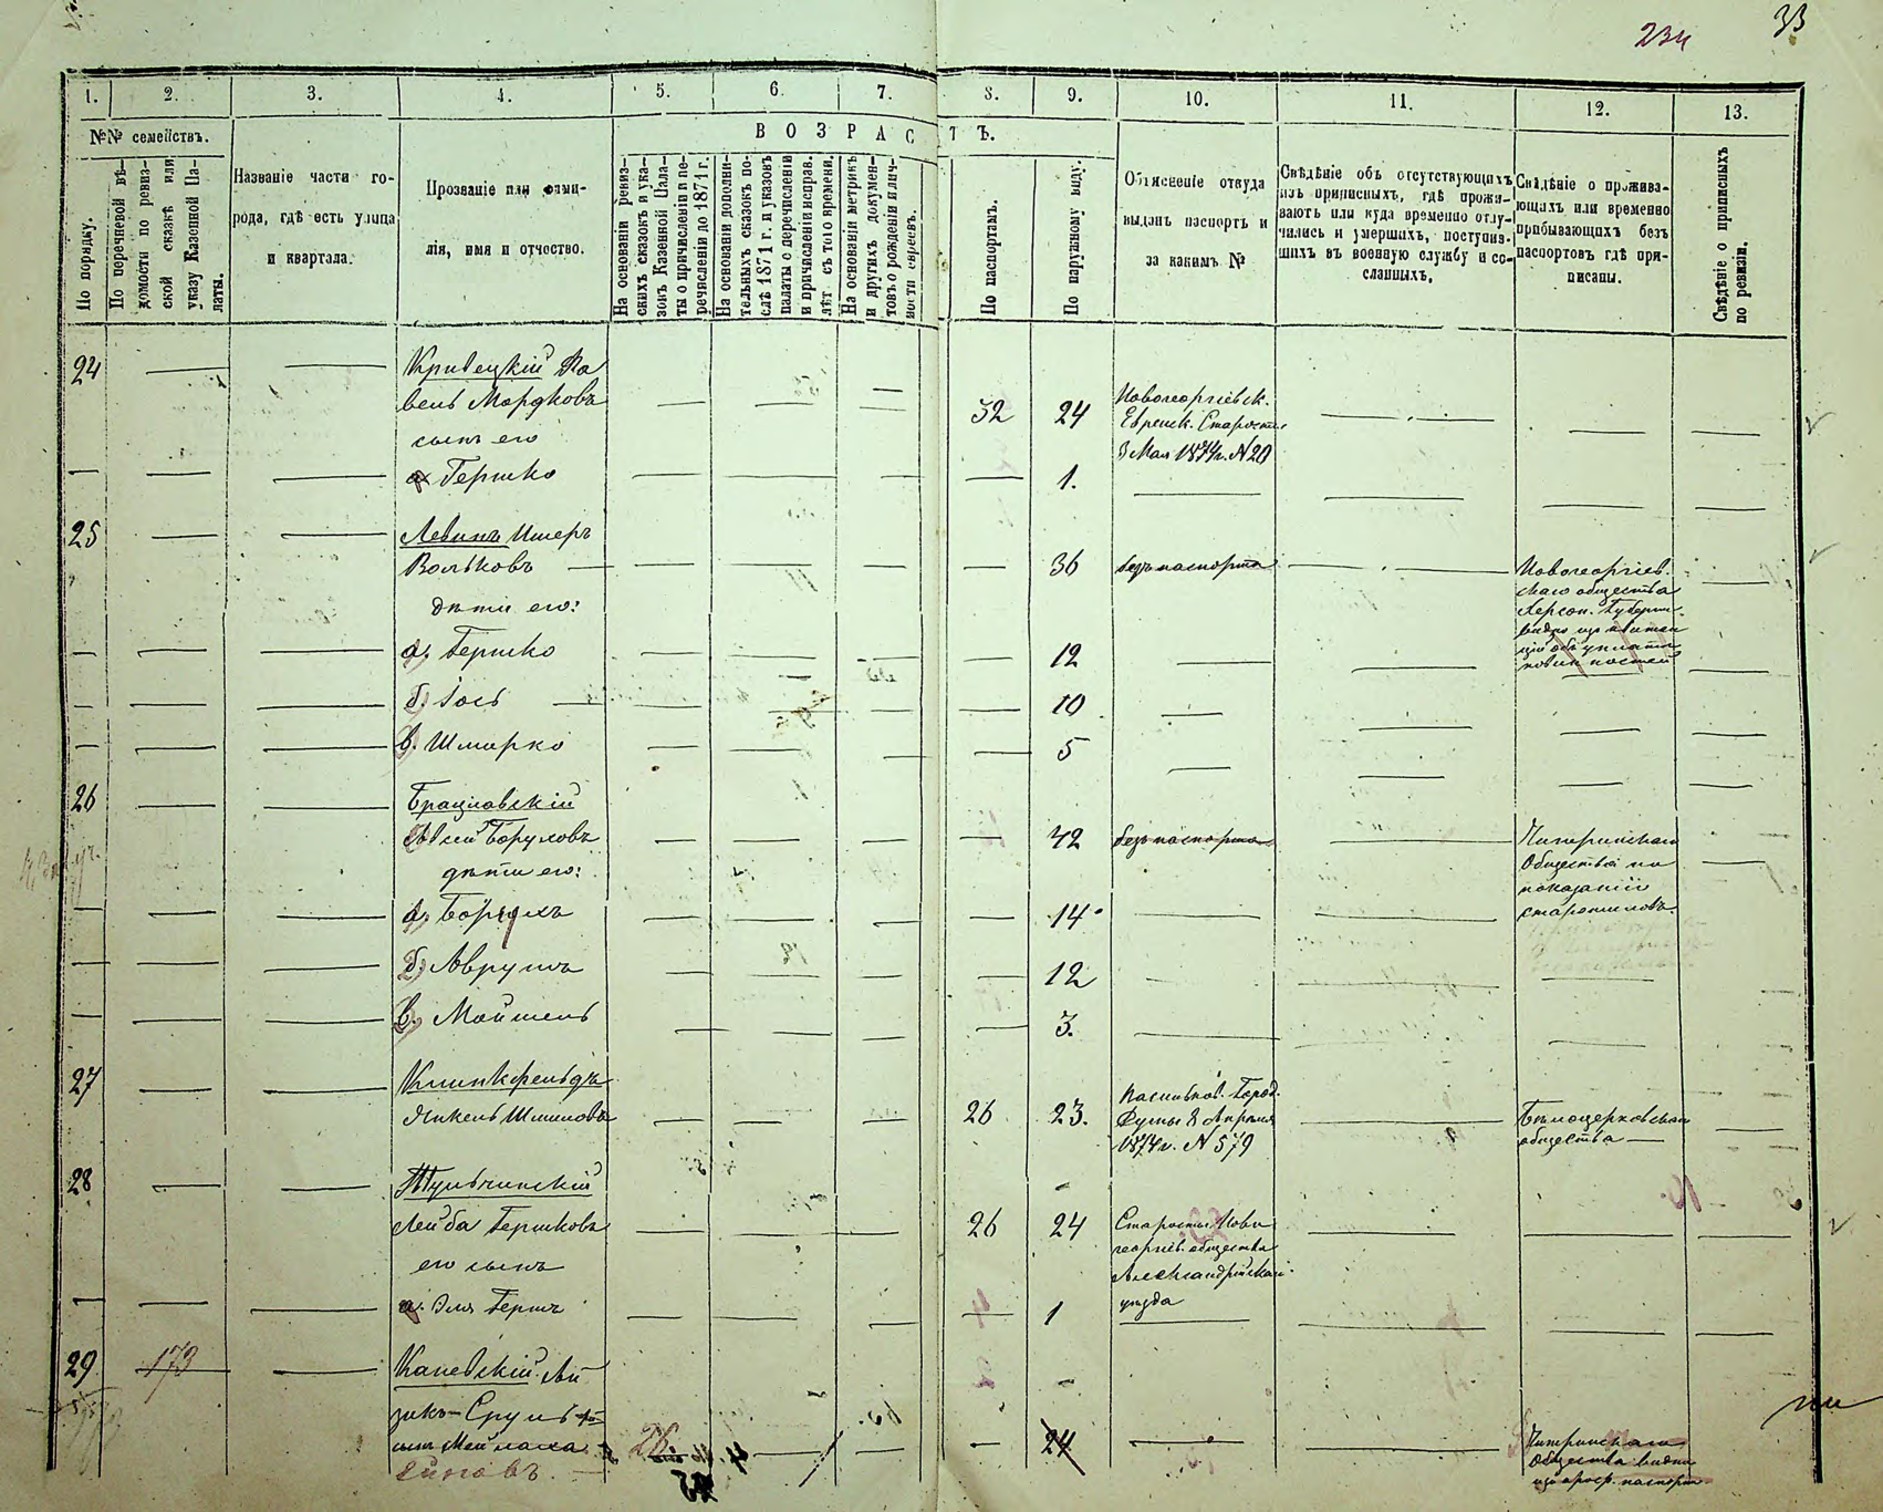 234
33
1. 2. 3. 4. 5. 6. 7. 8. 9. 10. 11. 12. 13.
№№ семействъ.
ВОЗРАСТЪ.
По порядку.
По перечневой вѣ-
домости по ревиз-
ской сказкѣ или
указу Казенной Па-
латы.
Названіе части го-
рода, гдѣ есть улица
и квартала.
Прозваніе или фами-
лія, имя и отчество.
На основаніи ревиз-
скихъ сказокъ и ука-
зовъ Казенной Пала-
ты о причисленіи и пе-
речисленіи до 1871 г.
На основаніи дополни-
тельныхъ сказокъ по-
слѣ 1871 г. и указовъ
палаты о перечисленіи
и причисленіи исправ.
лѣт съ того времени.
На основаніи метрикъ
и другихъ докумен-
товъ о рожденіи и лич-
ности евреевъ.
По паспортамъ.
По наружному виду.
Объясненіе откуда
выданъ паспортъ и
за какимъ №
Свѣдѣніе объ отсутствующихъ
изъ приписныхъ, гдѣ прожи-
ваютъ или куда временно отлу-
чились и умершихъ, поступив-
шихъ въ военную службу и со-
сланныхъ.
Свѣдѣніе о прожива-
ющихъ или временно
прибывающихъ безъ
паспортовъ гдѣ при-
писаны.
Свѣдѣніе о приписныхъ
по ревизіи.
24 Кривецкій Па
вель Мордковъ 32 24 Новогеоргіевск.
Еврейск. Старост.
3 Мая 1874 г. № 20
сынъ его
а Гершко 1.
25 Левинъ Мееръ
Вольковъ 36 безъ паспорта Новогеоргіев.
скаго общества
Херсон. Губерн.
дѣти его:
а. Гершко 12
б. Іось 10
в. Шмарко 5
26 Брацлавскій
Боруховъ 42 безъ паспорта Чигиринскаго
Общества по
показанію
дѣти его:
а. Борухъ 14
б. Аврумъ 12
в. Мойшель 3.
27 Клинкфельдъ
Янкель Шмиловъ 26 23. Городс.
Думы 8 Апрѣля
1874 г. № 579
Бѣлоцерковскаго
общества
28 Тульчинскій
Лейба Гершковъ 26 24 Старосты Ново
георгіев. общества
Александрійскаго
уѣзда
его сынъ
а. Эля Гершъ 1
29 173 Каневскій Ай
зикъ-Сруль
сынъ Мейлаха 26 24 Чигиринскаго
Общества видно
изъ проср. паспорт.